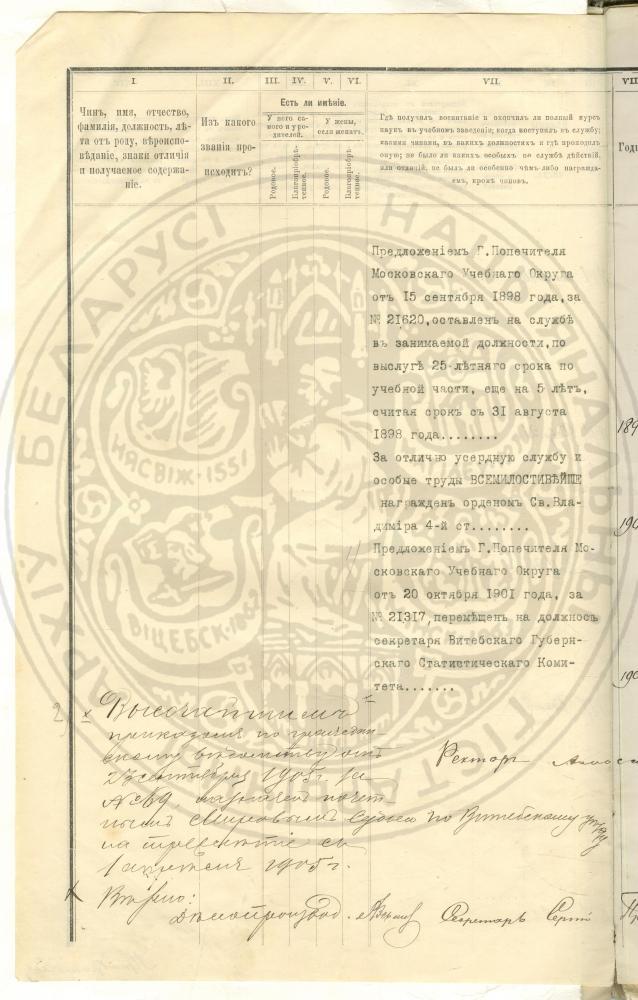 I.
II.
III.
IV.
V.
VI.
VII.
VII
Чинъ, имя, отчество,
фамилія, должность, лѣ-
та отъ роду, вѣроиспо-
вѣданіе, знаки отличія
и получаемое содержа-
ніе.
Изъ какого
званія про-
исходитъ?
Есть ли имѣніе.
У него са-
мого и у ро-
дителей.
У жены,
если женатъ.
Родовое.
Благопріобрѣ-
тенное.
Родовое.
Благопріобрѣ-
тенное.
Гдѣ получилъ воспитаніе и окончилъ ли полный курсъ
наукъ въ учебномъ заведеніи; когда вступилъ въ службу;
какими чинами, въ какихъ должностяхъ и гдѣ проходилъ
оную; не было ли какихъ особыхъ по службѣ дѣйствій
или отличій; не былъ ли особенно чѣмъ-либо награжда-
емъ, кромѣ чиновъ.
Годы
Предложеніемъ Г.Попечителя
Московскаго Учебнаго Округа
отъ 15 сентября 1898 года,за
№ 21620,оставленъ на службѣ
въ занимаемой должности,по
выслугѣ 25-лѣтняго срока по
учебной части, еще на 5 лѣтъ,
считая срокъ съ 31 августа
1898 года........
За отлично усердную службу и
особые труды ВСЕМИЛОСТИВѢЙШЕ
награжденъ орденомъ Св.Вла-
диміра 4-й ст........
Предложеніемъ Г.Попечителя Мо-
сковскаго Учебнаго Округа
отъ 20 октября 1901 года, за
№ 21317,перемѣщенъ на должность
секретаря Витебскаго Губерн-
скаго Статистическаго Коми-
тета.......
189
190
190
Высочайшимъ
приказомъ по граждан-
скому вѣдомству отъ
сентября 1905 г. за
№ 69 назначенъ почет-
нымъ Мировымъ Судьею по Витебскому уѣзду
на трехлѣтіе съ
1 апрѣля 1905 г.
Ректоръ
Вѣрно:
Дѣлопроизвод.
Секретарь
НЯСВІЖ·1551
ВІЦЕБСК·1862
БЕЛАРУСІ
НАЦЫЯНАЛЬНЫ
ГІСТАРЫЧНЫ